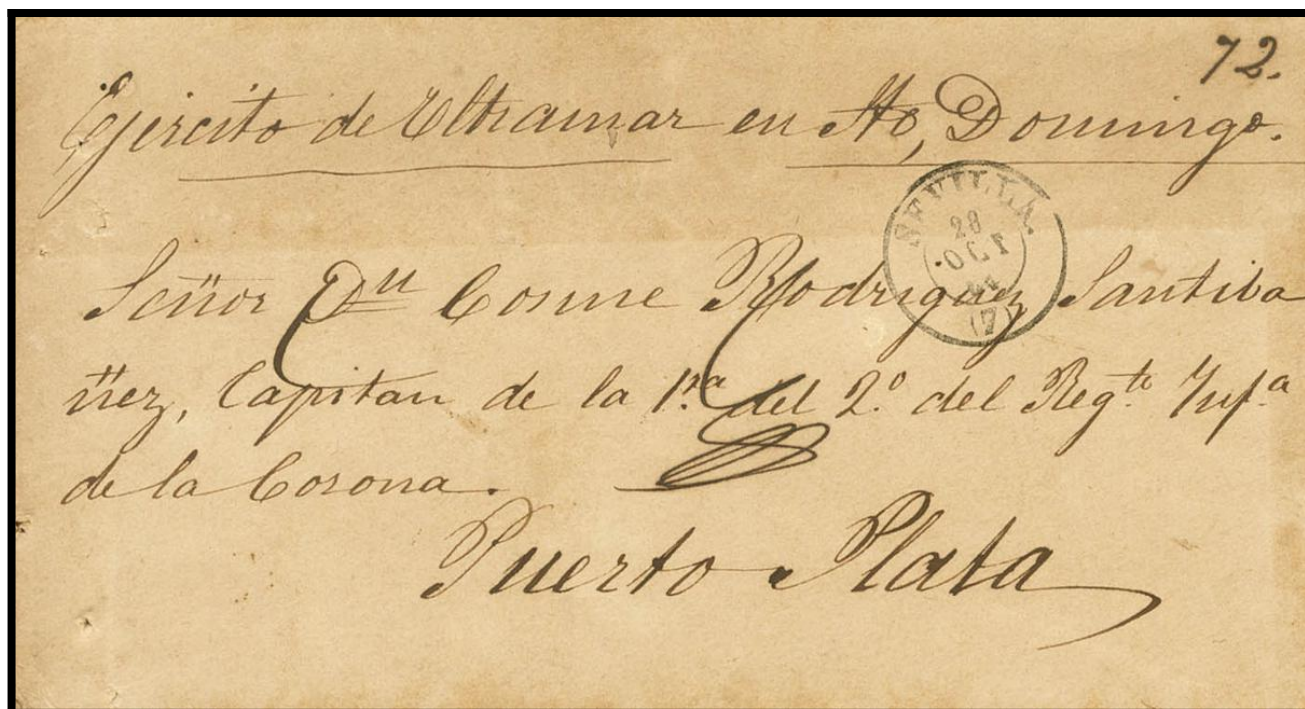 72.
Ejército de Ultramar en Sto, Domingo.
SEVILLA.
28
OCT
(7)
Señor Dn Cosme Rodriguez Santiba
ñez, Capitan de la 1ª del 2º del Regto Infa
de la Corona.
Puerto Plata